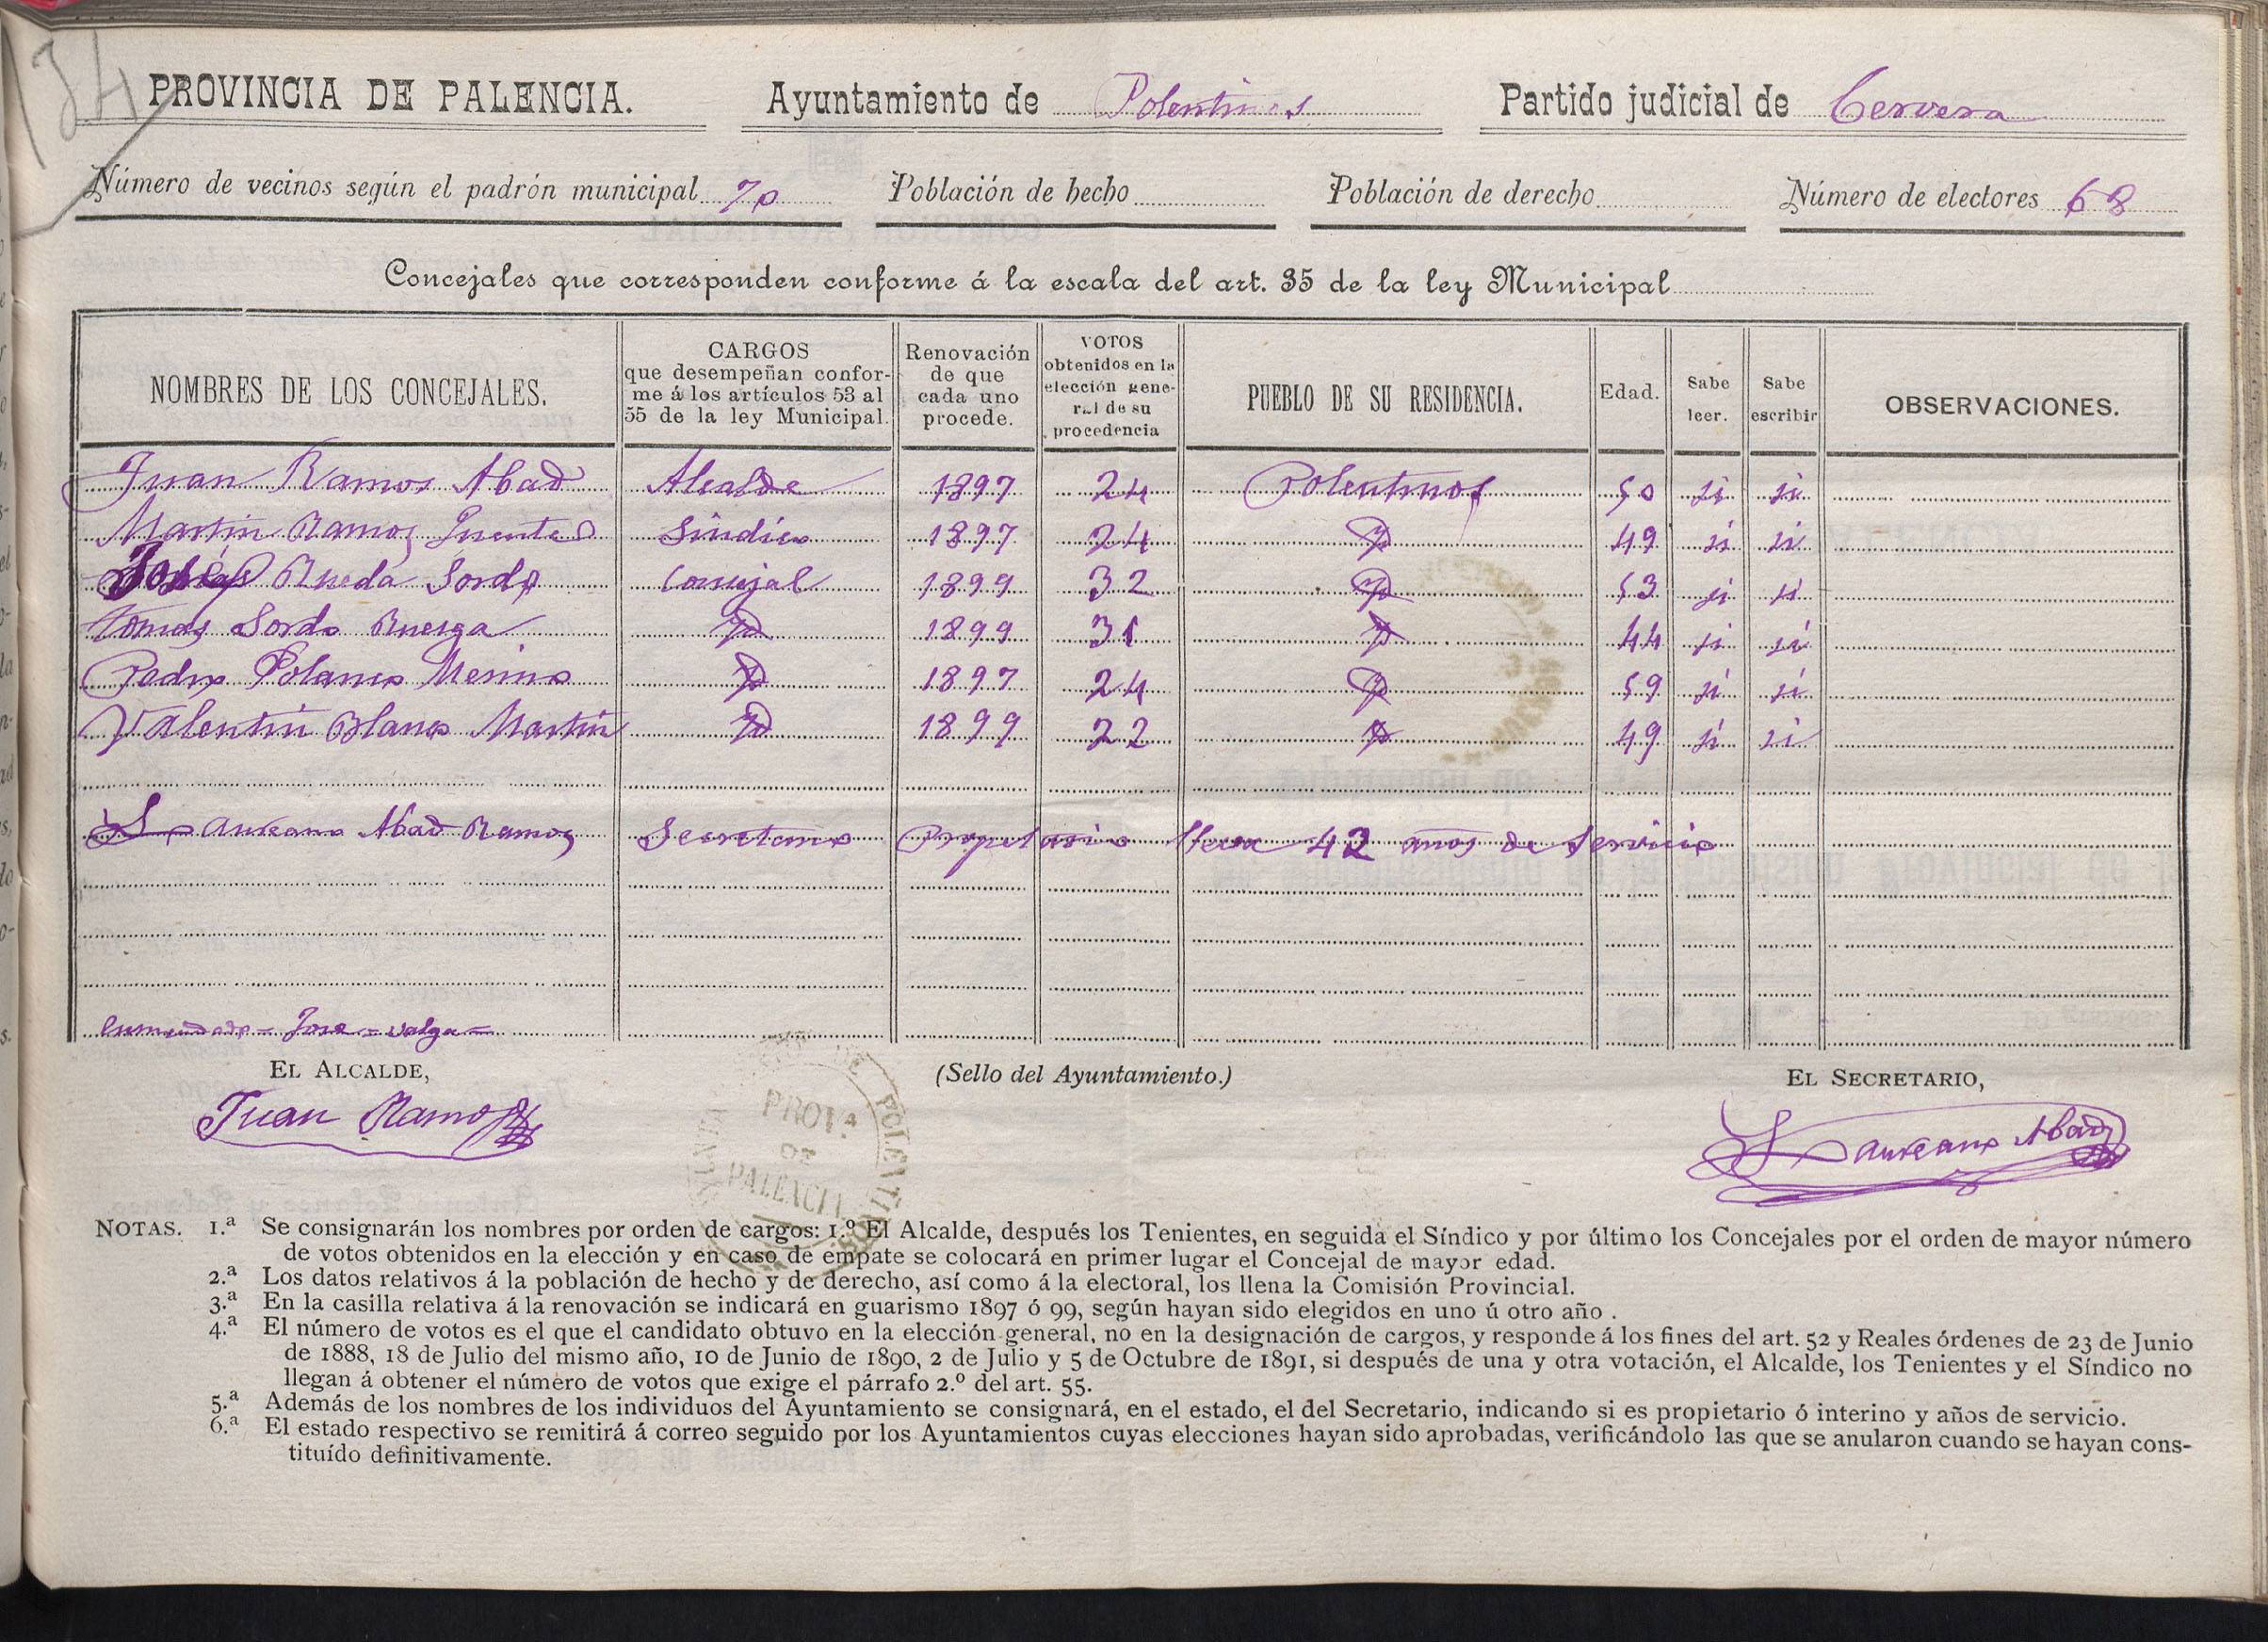 134
PROVINCIA DE PALENCIA. Ayuntamiento de Polentinos Partido judicial de Cervera
Número de vecinos según el padrón municipal 70 Población de hecho Población de derecho Número de electores 68
Concejales que corresponden conforme á la escala del art. 35 de la ley Municipal
NOMBRES DE LOS CONCEJALES. CARGOS que desempeñan conforme á los artículos 53 al 55 de la ley Municipal. Renovación de que cada uno procede. VOTOS obtenidos en la elección general de su procedencia PUEBLO DE SU RESIDENCIA. Edad. Sabe leer. Sabe escribir OBSERVACIONES.
Juan Ramos Abad Alcalde 1897 24 Polentinos 50 si si
Martin Ramos Puente Sindico 1897 24 49 si si
José Rueda Sordo Concejal 1899 32 53 si si
Tomas Sordo Ruesga 1899 31 44 si si
Pedro Polanco Merino 1897 24 59 si si
Valentin Blanco Martin 1899 22 49 si si
Laureano Abad Ramos Secretario Propietario lleva 42 años de Servicio
Enmendado = Jose = valga =
EL ALCALDE, (Sello del Ayuntamiento.) EL SECRETARIO,
Juan Ramos Laureano Abad
PROV.ª
DE
PALENCIA
NOTAS. 1.ª Se consignarán los nombres por orden de cargos: 1.º El Alcalde, después los Tenientes, en seguida el Síndico y por último los Concejales por el orden de mayor número
de votos obtenidos en la elección y en caso de empate se colocará en primer lugar el Concejal de mayor edad.
2.ª Los datos relativos á la población de hecho y de derecho, así como á la electoral, los llena la Comisión Provincial.
3.ª En la casilla relativa á la renovación se indicará en guarismo 1897 ó 99, según hayan sido elegidos en uno ú otro año .
4.ª El número de votos es el que el candidato obtuvo en la elección general, no en la designación de cargos, y responde á los fines del art. 52 y Reales órdenes de 23 de Junio
de 1888, 18 de Julio del mismo año, 10 de Junio de 1890, 2 de Julio y 5 de Octubre de 1891, si después de una y otra votación, el Alcalde, los Tenientes y el Síndico no
llegan á obtener el número de votos que exige el párrafo 2.º del art. 55.
5.ª Además de los nombres de los individuos del Ayuntamiento se consignará, en el estado, el del Secretario, indicando si es propietario ó interino y años de servicio.
6.ª El estado respectivo se remitirá á correo seguido por los Ayuntamientos cuyas elecciones hayan sido aprobadas, verificándolo las que se anularon cuando se hayan cons-
tituído definitivamente.